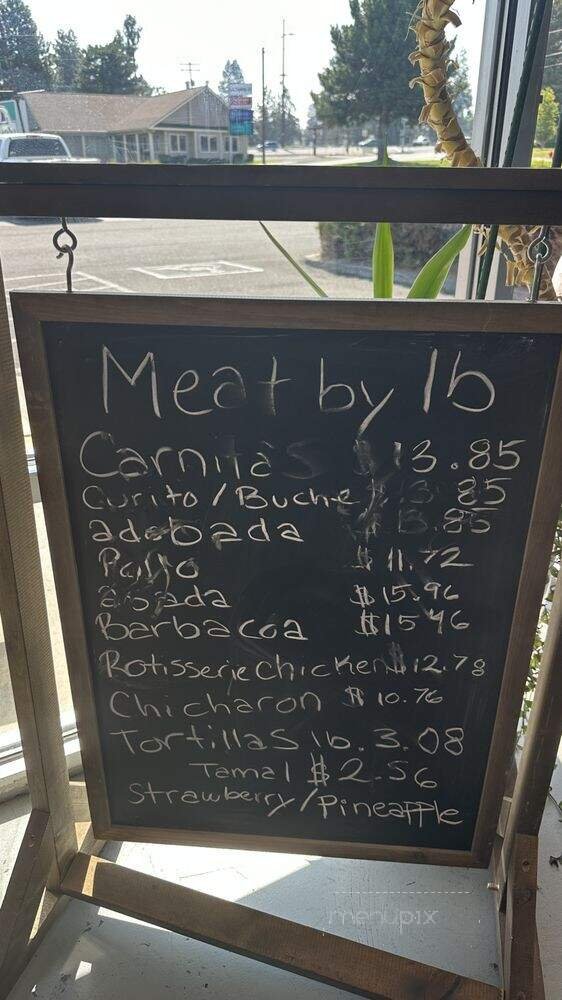 Meat by lb
Carnitas $13.85
Curito/Buche 85
adobada $13.85
Pollo $11.72
asada $15.96
Barbacoa $15 46
Rotisserie Chicken $12.78
Chicharon $10.76
Tortillas lb. 3.08
Tamal $2.56
Strawberry/Pineapple
menupix